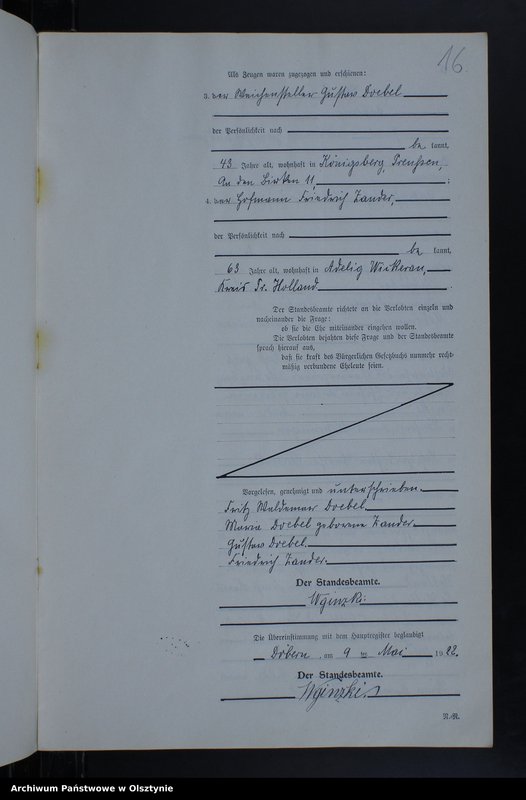 16.
Als Zeugen waren zugezogen und erschienen:
3. der Weichensteller Gustav Doebel
der Persönlichkeit nach
be kannt,
43 Jahre alt, wohnhaft in Königsberg, Preußen,
An den Birken 11, ;
4. der Hofmann Friedrich Zander,
der Persönlichkeit nach
be kannt,
63 Jahre alt, wohnhaft in Adelig Wickerau,
Kreis Pr. Holland .
Der Standesbeamte richtete an die Verlobten einzeln und
nacheinander die Frage:
ob sie die Ehe miteinander eingehen wollen.
Die Verlobten bejahten diese Frage und der Standesbeamte
sprach hierauf aus,
daß sie kraft des Bürgerlichen Gesetzbuchs nunmehr recht-
mäßig verbundene Eheleute seien.
Vorgelesen, genehmigt und unterschrieben.
Fritz Waldemar Doebel
Maria Doebel geborene Zander
Gustav Doebel
Friedrich Zander.
Der Standesbeamte.
Die Übereinstimmung mit dem Hauptregister beglaubigt
Döbern, am 9 ten Mai 1922.
Der Standesbeamte.
N.-R.
Archiwum Państwowe w Olsztynie